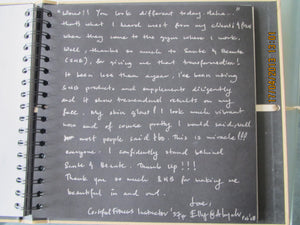 "Wow!! You look different today. Haha.."
that's what I heard most from my clients &
when they come to the gym where I work.
Well, thanks so much to Sante & Beaute
(S&B), for giving me that transformation!
It been less than a year, I've been using
S&B products and supplements diligently
and it show tremendous results on my
face. My skin glow! I look much vibrant
now and of course pretty. I would said, well
most people said too. This is miracle!!!
everyone. I confidently stand behind
Sante & Beaute. Thumb up!!!
Thank you so much S&B for making me
beautiful in and out.
Love,
Certified Fitness Instructor